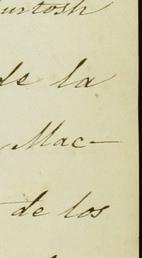 urtosh
de la
Mac—
de los